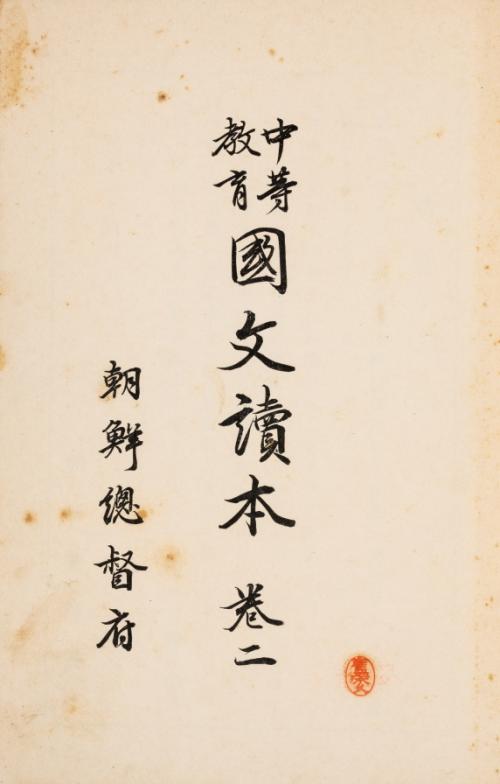 中等
教育
國文讀本 卷二
朝鮮總督府